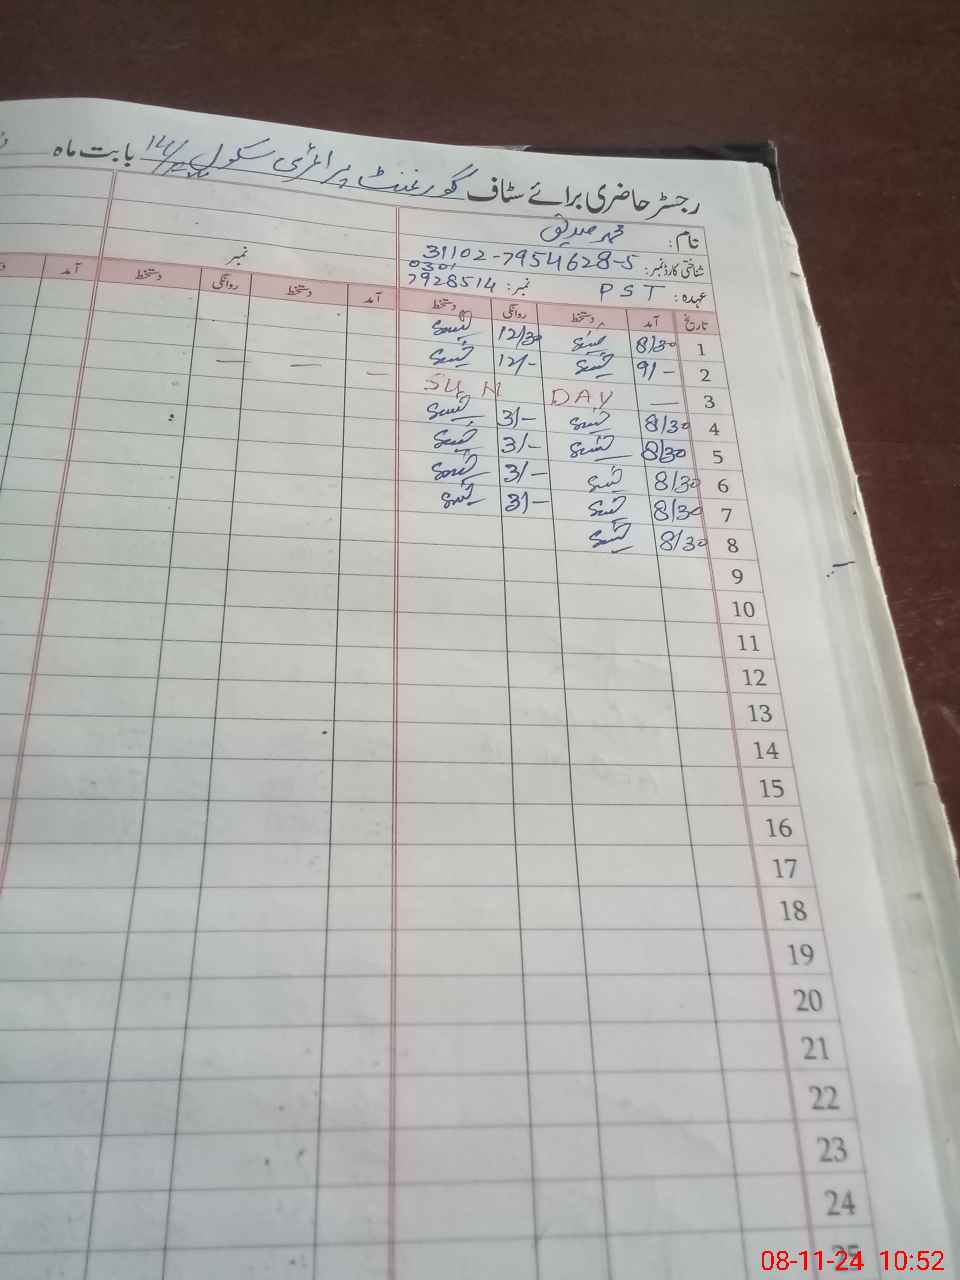 رجسٹر حاضری برائے سٹاف گورنمنٹ پرائمری سکول 14/ بابت ماہ
نام: محمد صدیق
شناختی کارڈ نمبر: 31102-7954628-5
عہدہ: PST نمبر: 0301 7928514
نمبر
تاریخ آمد دستخط روانگی دستخط آمد دستخط روانگی دستخط آمد
1 8/30 12/30
2 9/- 12/- — — —
3 — SUN DAY
4 8/30 3/-
5 8/30 3/-
6 8/30 3/-
7 8/30 3/-
8 8/30
9
10
11
12
13
14
15
16
17
18
19
20
21
22
23
24
25
08-11-24 10:52